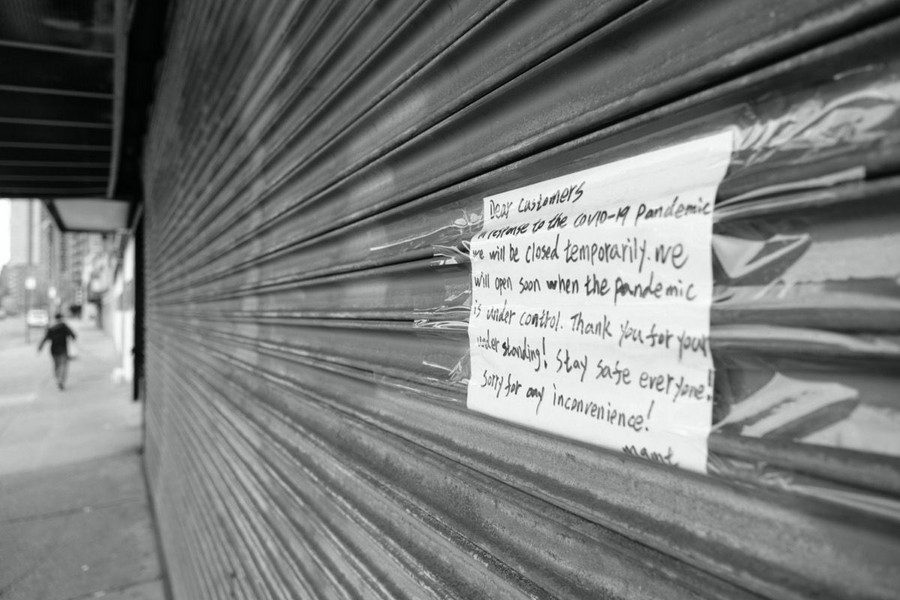 Dear Customers
In response to the COVID-19 pandemic
we will be closed temporarily. We
will open soon when the pandemic
is under control. Thank you for your
under standing! Stay safe everyone!
Sorry for any inconvenience!
Mgmt